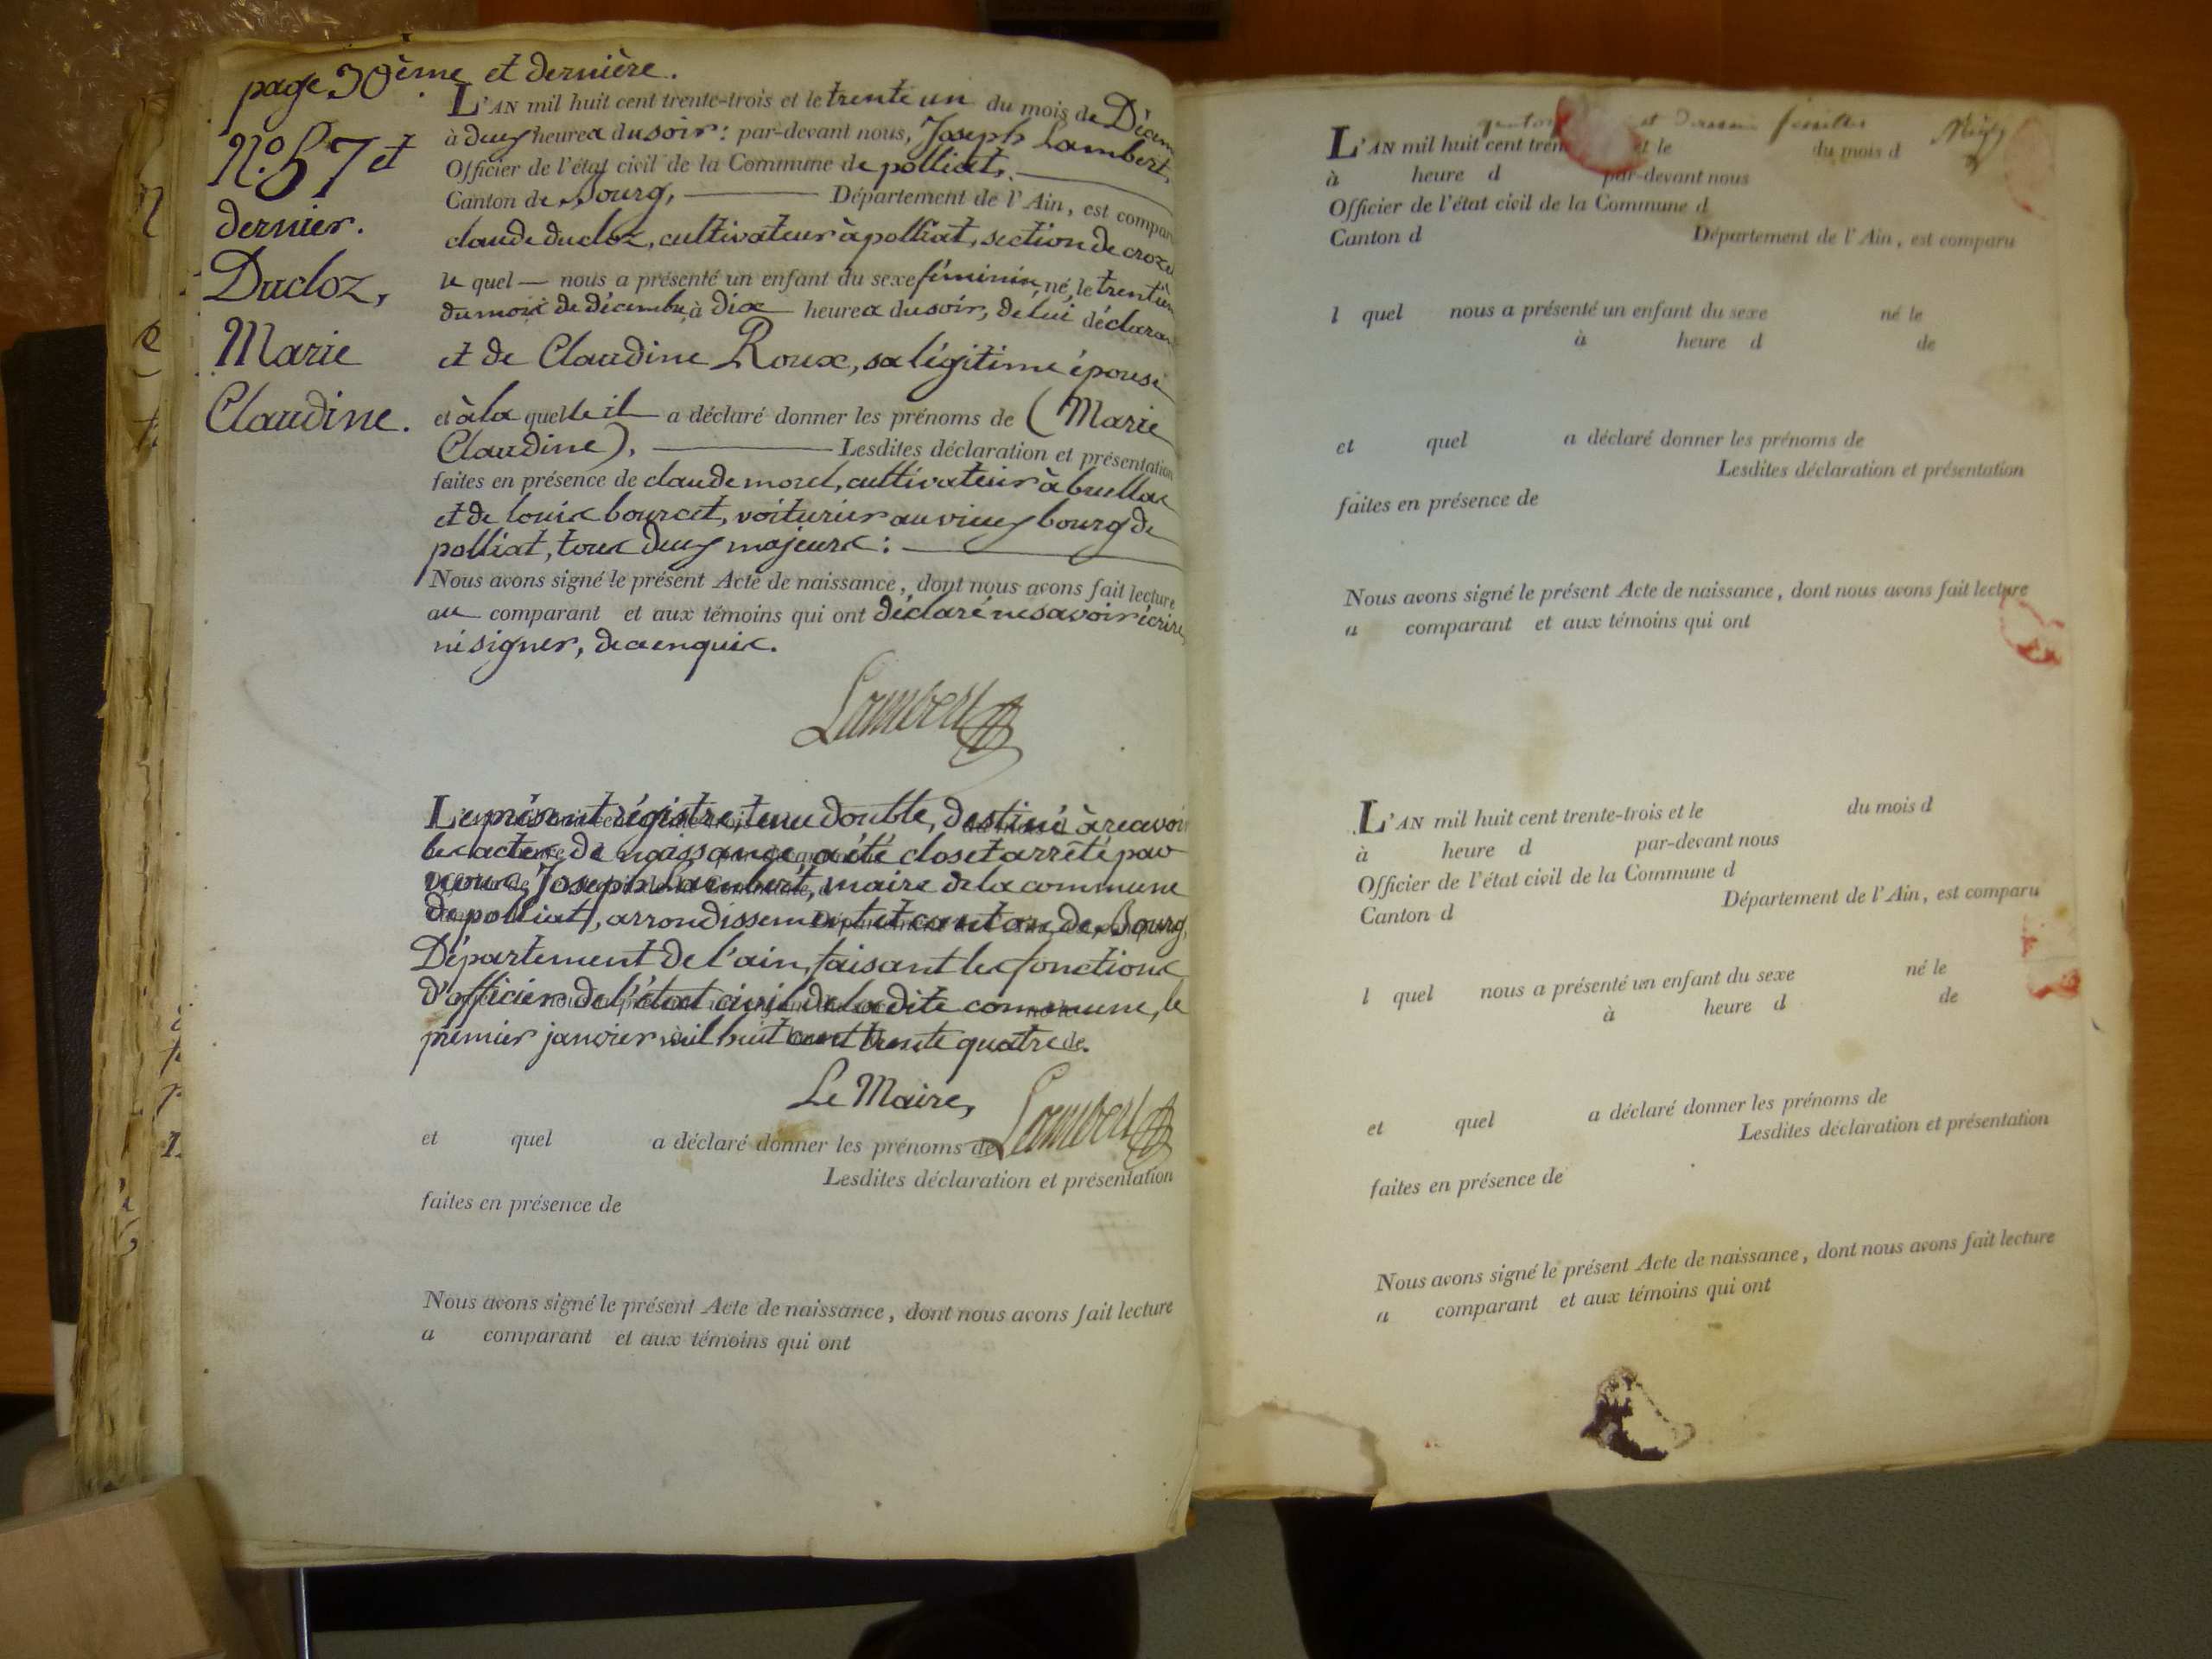 page 30ème et dernière.
N.o 57 et
dernier.
Ducloz,
Marie
Claudine.
L'AN mil huit cent trente-trois et le trente un du mois de Décem
à deux heures du soir : par-devant nous, Joseph Lambert,
Officier de l'état civil de la Commune de polliat,
Canton de Bourg, Département de l'Ain, est compar
claude ducloz, cultivateur à polliat, section de croza
le quel nous a présenté un enfant du sexe féminin, né, le trente un
du mois de décembre, à dix heures du soir, de lui déclaran
et de Claudine Roux, sa légitime épouse
et à la quelle il a déclaré donner les prénoms de (Marie
Claudine), Lesdites déclaration et présentation
faites en présence de claude morel, cultivateur à
et de louis bourcet, voiturier au vieux bourg de
polliat, tous deux majeurs :
Nous avons signé le présent Acte de naissance, dont nous avons fait lecture
au comparant et aux témoins qui ont déclaré ne savoir écrire,
ni signer, de ce enquis.
Lambert
Le présent régistre, tenu double, destiné à recevoir
les actes de naissance, a été clos et arrêté par
nous, Joseph Lambert, maire de la commune
de polliat, arrondissement et canton de Bourg,
Département de l'ain, faisant les fonctions
d'officier de l'état civil de la dite commune, le
premier janvier mil huit cent trente quatre.
Le Maire,
Lambert
et quel a déclaré donner les prénoms de
Lesdites déclaration et présentation
faites en présence de
Nous avons signé le présent Acte de naissance, dont nous avons fait lecture
a comparant et aux témoins qui ont
et feuillet
L'AN mil huit cent tren et le du mois d
à heure d par-devant nous
Officier de l'état civil de la Commune d
Canton d Département de l'Ain, est comparu
l quel nous a présenté un enfant du sexe né le
à heure d de
et quel a déclaré donner les prénoms de
Lesdites déclaration et présentation
faites en présence de
Nous avons signé le présent Acte de naissance, dont nous avons fait lecture
a comparant et aux témoins qui ont
L'AN mil huit cent trente-trois et le du mois d
à heure d par-devant nous
Officier de l'état civil de la Commune d
Canton d Département de l'Ain, est comparu
l quel nous a présenté un enfant du sexe né le
à heure d de
et quel a déclaré donner les prénoms de
Lesdites déclaration et présentation
faites en présence de
Nous avons signé le présent Acte de naissance, dont nous avons fait lecture
a comparant et aux témoins qui ont